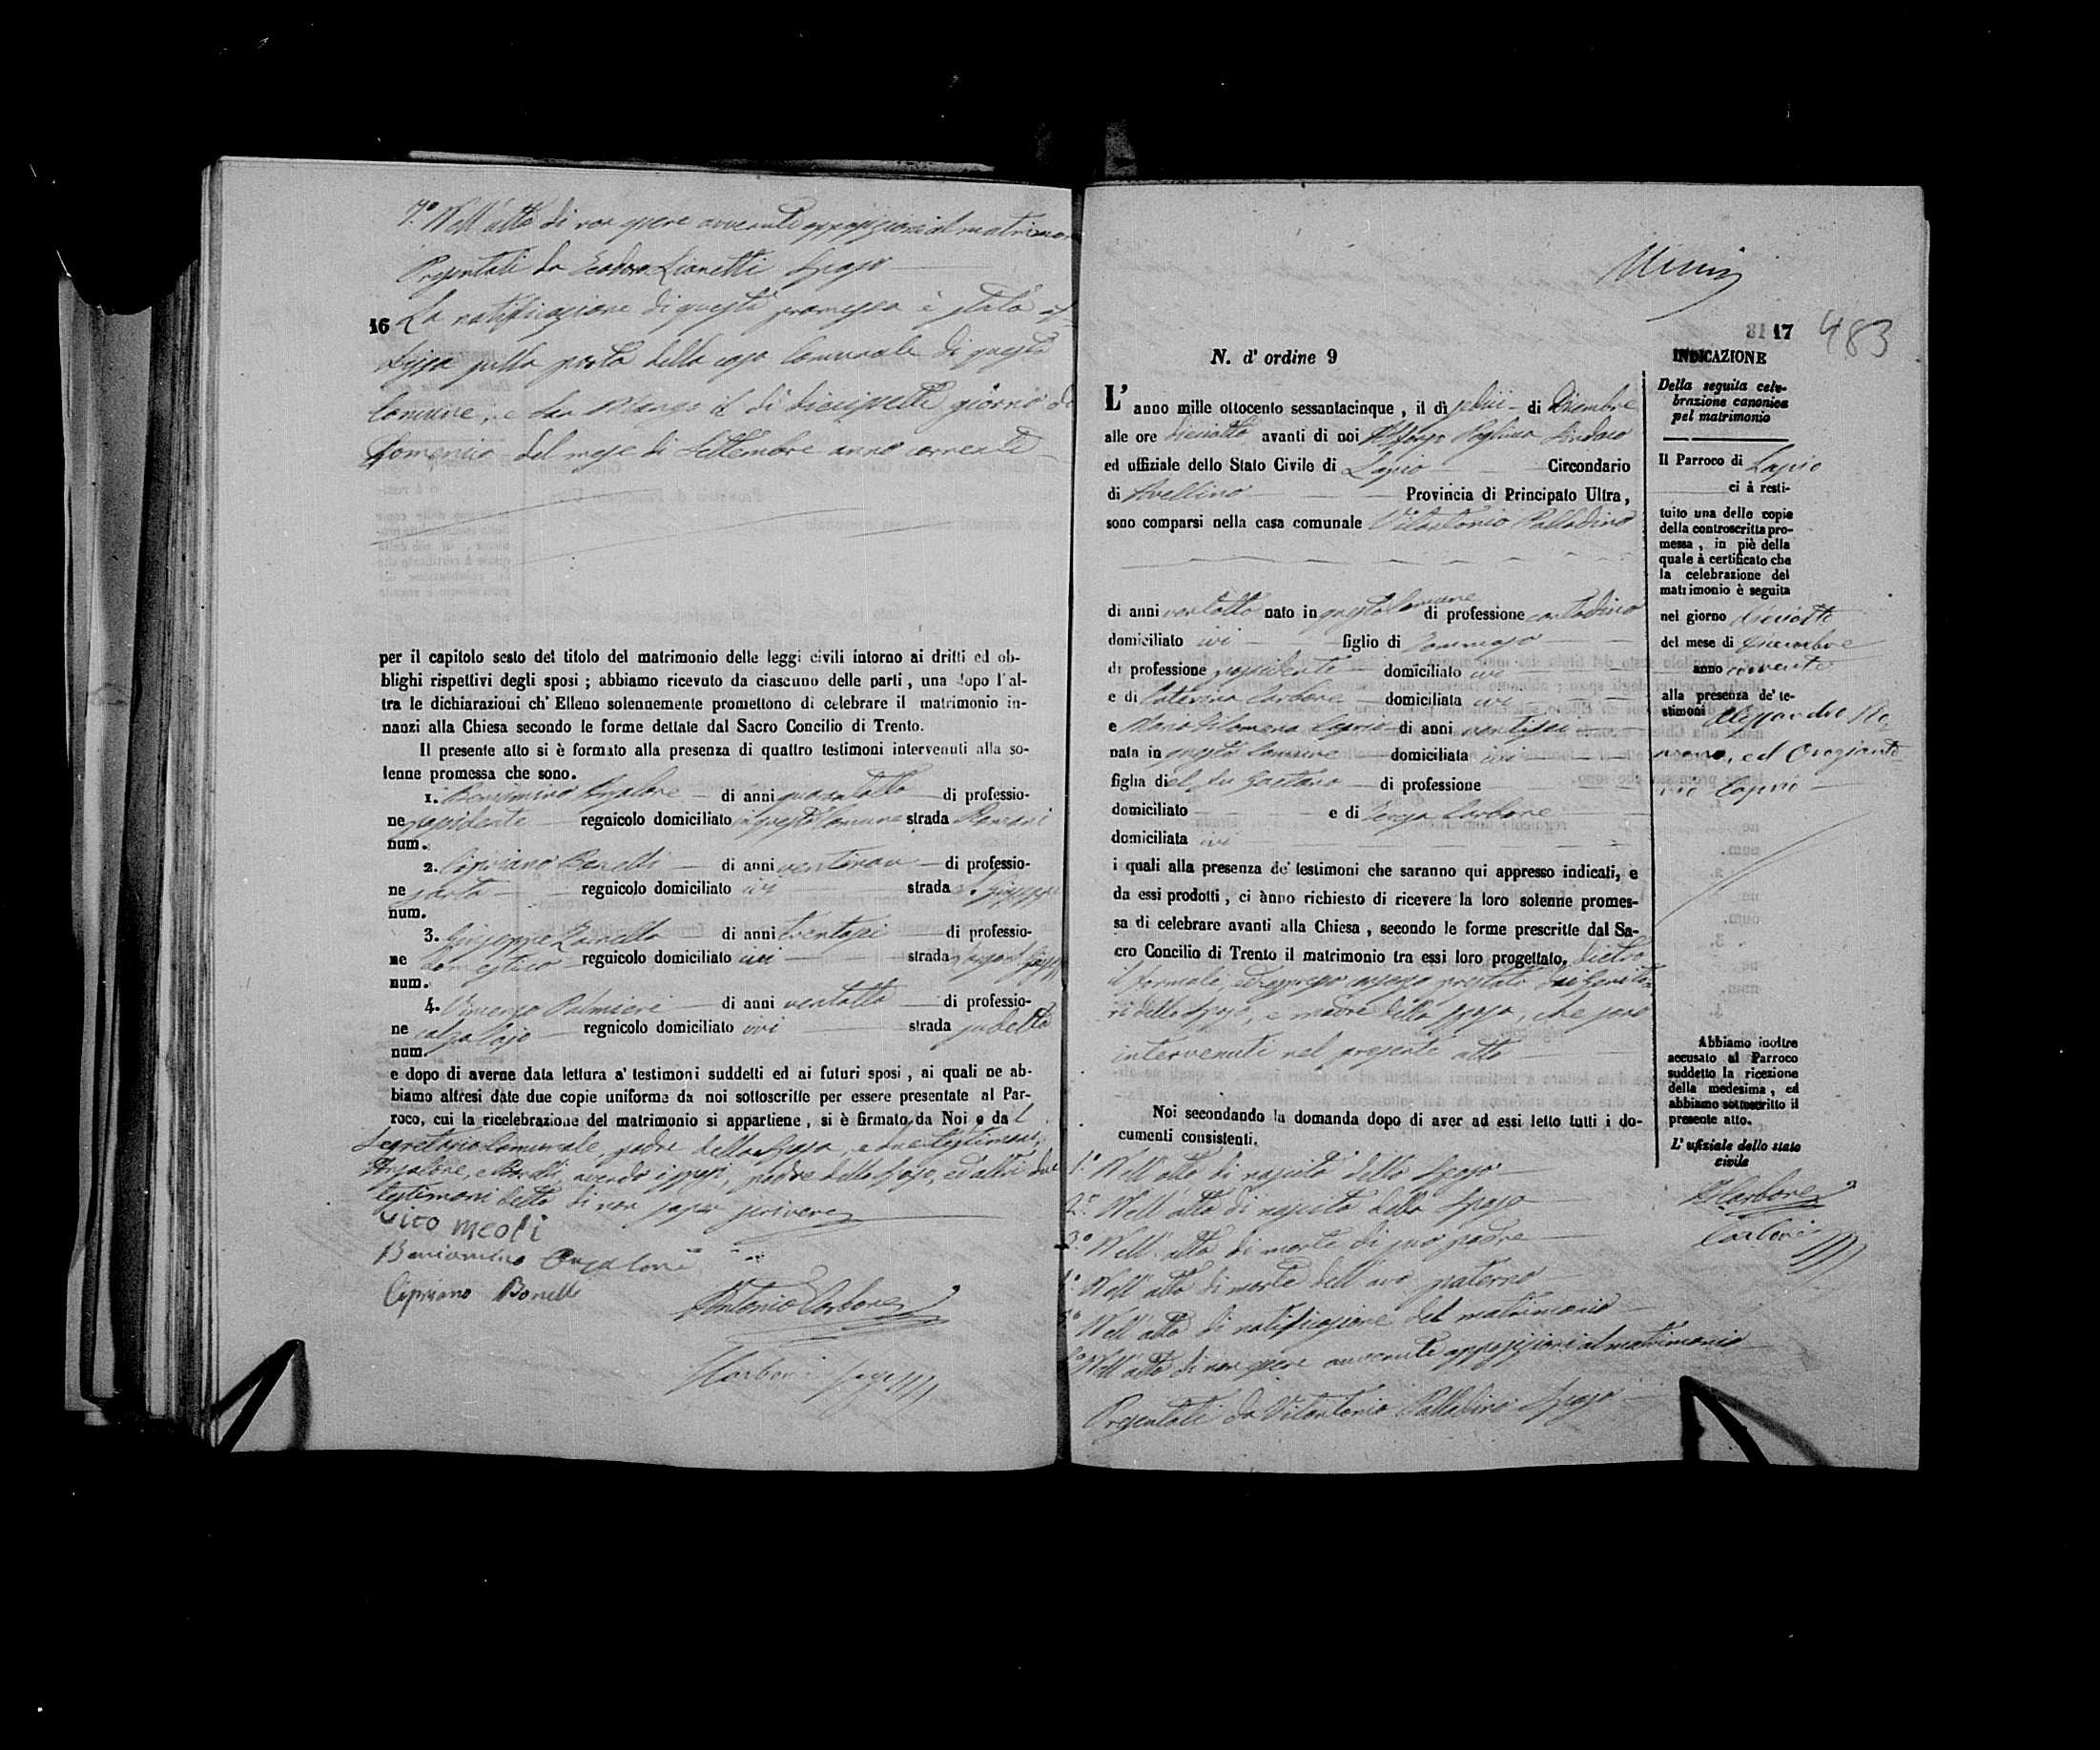 7.° Nell'atto di non essere avvenute opposizioni al matrimon
Presentati da Teodoro Lionetti Sposo
16 La notificazione di questa promessa è stata af-
fissa sulla porta della casa Comunale di questo
Comune, il dì diciassette giorno di
Domenica del mese di Settembre anno corrente
per il capitolo sesto del titolo del matrimonio delle leggi civili intorno ai dritti ed ob-
blighi rispettivi degli sposi ; abbiamo ricevuto da ciascuno delle parti , una dopo l'al-
tra le dichiarazioni ch' Elleno solennemente promettono di celebrare il matrimonio in-
nanzi alla Chiesa secondo le forme dettate dal Sacro Concilio di Trento.
Il presente atto si è formato alla presenza di quattro testimoni intervenuti alla so-
lenne promessa che sono.
1. Beniamino Anzalone di anni quarantotto di professio-
ne possidente regnicolo domiciliato in questo Comune strada Romani
num.
2. Cipriano Bonelli di anni ventinove di professio-
ne sarto regnicolo domiciliato ivi strada S. Giuseppe
num.
3. Giuseppe di anni trentasei di professio-
ne domestico regnicolo domiciliato ivi strada
num.
4. Vincenzo Palmieri di anni ventotto di professio-
ne calzolajo regnicolo domiciliato ivi strada
num.
e dopo di averne data lettura a' testimoni suddetti ed ai futuri sposi , ai quali ne ab-
biamo altresì date due copie uniforme da noi sottoscritte per essere presentate al Par-
roco, cui la ricelebrazione del matrimonio si appartiene , si è firmato da Noi e dal
Segretario Comunale, padre della Sposa, e due testimoni,
Anzalone, e Bonelli, avendo i sposi, padre dello Sposo, ed altri due
testimoni detto di non saper scrivere
Vito Meoli
Beniamino Anzalone
Cipriano Bonelli
Antonio Carbone
Carbone
31 17 483
N. d' ordine 9
L'anno mille ottocento sessantacinque , il dì sedici di Dicembre
alle ore diciotto avanti di noi Sindaco
ed uffiziale dello Stato Civile di Lapio Circondario
di Avellino Provincia di Principato Ultra,
sono comparsi nella casa comunale Vitantonio Palladino
di anni ventotto nato in questo Comune di professione contadino
domiciliato ivi figlio di Tommaso
di professione possidente domiciliato ivi
e di Caterina Carbone domiciliata ivi
e Maria Filomena di anni ventisei
nata in questo Comune domiciliata ivi
figlia del fu Gaetano di professione
domiciliato e di Carbone
domiciliata ivi
i quali alla presenza de' testimoni che saranno qui appresso indicati, e
da essi prodotti , ci ànno richiesto di ricevere la loro solenne promes-
sa di celebrare avanti alla Chiesa , secondo le forme prescritte dal Sa-
cro Concilio di Trento il matrimonio tra essi loro progettato, dietro
il formale, ed espresso consenso prestato dai Genito-
ri dello Sposo, e madre della Sposa, che sono
intervenuti nel presente atto
Noi secondando la domanda dopo di aver ad essi letto tutti i do-
cumenti consistenti.
1.° Nell'atto di nascita dello Sposo
2.° Nell'atto di nascita della Sposa
3.° Nell'atto di morte di suo padre
4.° Nell'atto di morte dell'avo paterno
5.° Nell'atto di notificazione del matrimonio
6.° Nell'atto di non essere avvenute opposizioni al matrimonio
Presentati da Vitantonio Palladino Sposo
INDICAZIONE
Della seguita cele-
brazione canonica
pel matrimonio
Il Parroco di Lapio
ci à resti-
tuito una delle copie
della controscritta pro-
messa , in piè della
quale à certificato che
la celebrazione del
matrimonio è seguita
nel giorno diciotto
del mese di Dicembre
anno corrente
alla presenza de' te-
stimoni Alessandro Ro-
mano, ed
Abbiamo inoltre
accusato al Parroco
suddetto la ricezione
della medesima , ed
abbiamo sottoscritto il
presente atto.
L' ufiziale dello stato
civile
Carbone
Carbone